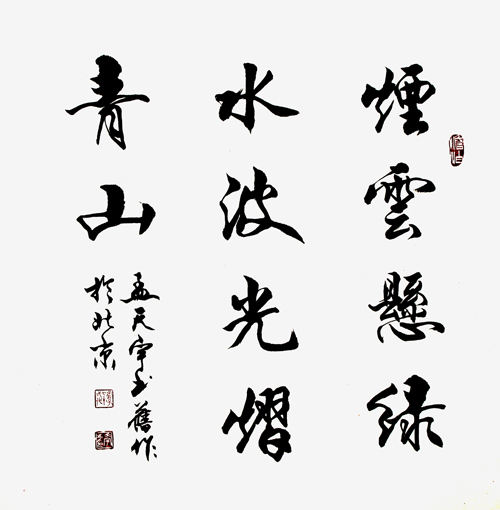 煙雲懸綠
水波光熠
青山
孟天宇書舊作
於北京